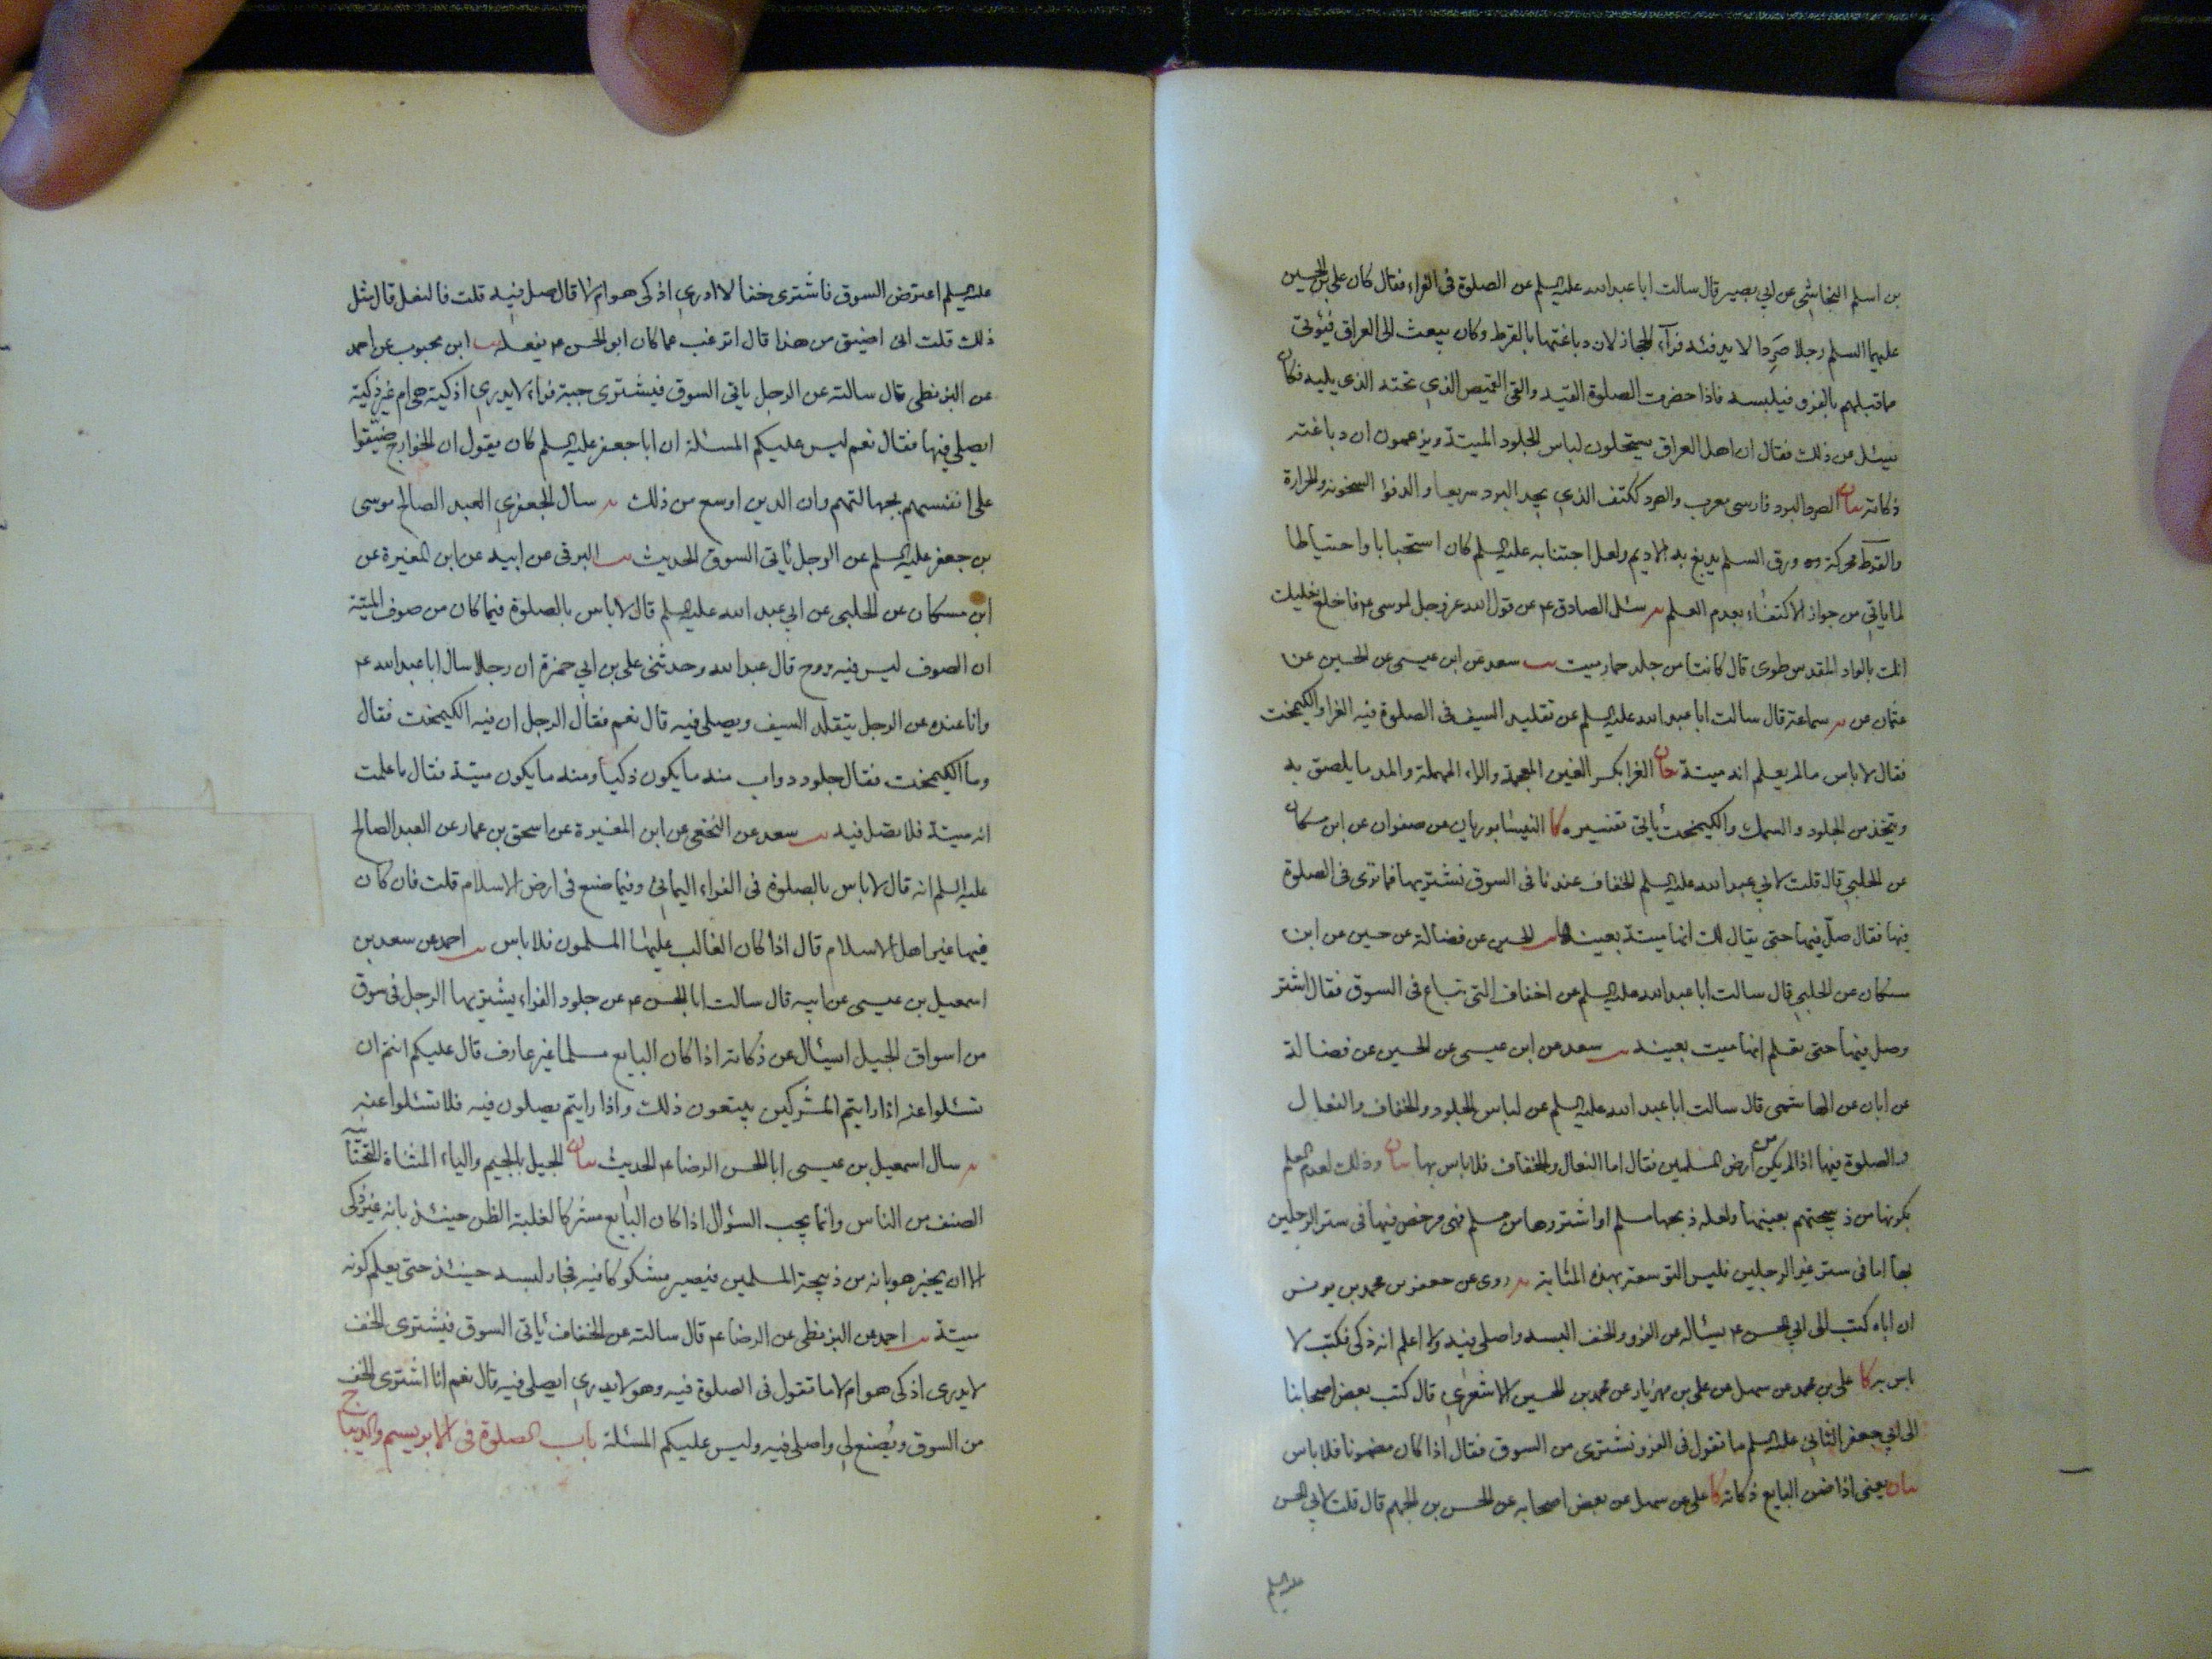 بن اسلم النجاشي عن ابي بصير قال سالت ابا عبد الله عليه السلم عن الصلوة في الفراء فقال كان علي بن الحسين
عليهما السلم رجلا صردا لا يدفئه فرآء الحجاز لان دباغتها بالقرظ وكان يبعث الى العراق فيؤتى
مما قبلهم بالفرو فيلبسه فاذا حضرت الصلوة القيه والقى القميص الذي تحته الذي يليه فكان
يسئل عن ذلك فقال ان اهل العراق يستحلون لباس الجلود الميتة ويزعمون ان دباغته
ذكاته بيان الصرد البرد فارسي معرب والصرد ككتف الذي يجد البرد سريعا والدفؤ السخونة والحرارة
والقرظ محركة ورق السلم يدبغ به الاديم ولعل اجتنابه عليه السلم كان استحبابا واحتياطا
لما ياتي من جواز الاكتفاء بعدم العلم يه سئل الصادق ع عن قول الله عز وجل لموسى ع فاخلع نعليك
انك بالواد المقدس طوى قال كانتا من جلد حمار ميت يب سعد عن ابن عيسى عن الحسين عن
عثمان عن يه سماعة قال سالت ابا عبد الله عليه السلم عن تقليد السيف في الصلوة فيه الغرا والكيمخت
فقال لا باس ما لم يعلم انه ميتة بيان الغرا بكسر الغين المعجمة والراء المهملة والمد ما يلصق به
ويتخذ من الجلود والسمك والكيمخت ياتي تفسيره كا النيشابوريان عن صفوان عن ابن مسكان
عن الحلبي قال قلت لابي عبد الله عليه السلم الخفاف عندنا في السوق نشتريها فما ترى في الصلوة
فيها فقال صل فيها حتى يقال لك انها ميتة بعينها يب الحسين عن فضالة عن حسين عن ابن
مسكان عن الحلبي قال سالت ابا عبد الله عليه السلم عن اخفاف التي تباع في السوق فقال اشتر
وصل فيها حتى تعلم انها ميت بعينه يب سعد عن ابن عيسى عن الحسين عن فضالة
عن ابان عن الهاشمي قال سالت ابا عبد الله عليه السلم عن لباس الجلود والخفاف والنعال
والصلوة فيها اذا لم يكن من ارض المسلمين فقال اما النعال والخفاف فلا باس بها بيان وذلك لعدم العلم
بكونها من ذبيحتهم بعينها ولعله ذبحها مسلم او اشتروها من مسلم فهي مرخص فيها في ستر الرجلين
بها اما في ستر غير الرجلين فليس التوسعة بهذه المثابة يه روى عن جعفر بن محمد بن يونس
ان اباه كتب الى ابي الحسن ع يسئاله عن الفرو والخف البسه واصلي فيه ولا اعلم انه ذكي فكتب لا
باس به كا علي بن محمد عن سهل عن علي بن مهزيار عن محمد بن الحسين الاشعري قال كتب بعض اصحابنا
الى ابي جعفر الثاني عليه السلم ما تقول في الفرو نشترى من السوق فقال اذا كان مضمونا فلا باس
بيان يعني اذا ضمن البايع ذكاته كا علي عن سهل عن بعض اصحابه عن الحسن بن الجهم قال قلت لابي الحسن
عليه السلم
عليه السلم اعترض السوق فاشترى خفا لا ادري اذكى هو ام لا قال صل فيه قلت فالنعل قال مثل
ذلك قلت اني اضيق من هذا قال اترغب عما كان ابو الحسن ع يفعله يب ابن محبوب عن احمد
عن البزنطي قال سالته عن الرجل ياتي السوق فيشترى جبة فراء لا يدري اذكية هي ام غير ذكية
ايصلي فيها فقال نعم ليس عليكم المسئلة ان ابا جعفر عليه السلم كان يقول ان الخوارج ضيقوا
على انفسهم بجهالتهم وان الدين اوسع من ذلك يه سال الجعفري العبد الصالح موسى
بن جعفر عليه السلم عن الرجل ياتي السوق الحديث يب البرقي عن ابيه عن ابن المغيرة عن
ابن مسكان عن الحلبي عن ابي عبد الله عليه السلم قال لا باس بالصلوة فيما كان من صوف الميتة
ان الصوف ليس فيه روح قال عبد الله وحدثني علي بن ابي حمزة ان رجلا سال ابا عبد الله ع
وانا عنده عن الرجل يتقلد السيف ويصلي فيه قال نعم فقال الرجل ان فيه الكيمخت فقال
وما الكيمخت فقال جلود دواب منه ما يكون ذكيا ومنه ما يكون ميتة فقال ما علمت
انه ميتة فلا تصل فيه يب سعد عن النخعي عن ابن المغيرة عن اسحق بن عمار عن العبد الصالح
عليه السلم انه قال لا باس بالصلوة في الفراء اليماني وفيما صنع في ارض الاسلام قلت فان كان
فيها غير اهل الاسلام قال اذا كان الغالب عليها المسلمون فلا باس يب احمد عن سعد بن
اسمعيل بن عيسى عن ابيه قال سالت ابا الحسن ع عن جلود الفراء يشتريها الرجل في سوق
من اسواق الجيل ايسئال عن ذكاته اذا كان البايع مسلما غير عارف قال عليكم انتم ان
تسئلوا عنه اذا رايتم المشركين يبيعون ذلك واذا رايتم يصلون فيه فلا تسئلوا عنه
يه سال اسمعيل بن عيسى ابا الحسن الرضا ع الحديث بيان الجيل بالجيم والياء المثناة التحتانية
الصنف من الناس وانما يجب السؤال اذا كان البايع مشركا لغلبة الظن حينئذ بانه غير ذكي
الا ان يخبر هو بانه من ذبيحة المسلمين فيصير مشكوكا فيه فجاز لبسه حينئذ حتى يعلم كونه
ميتة يب احمد عن البزنطي عن الرضا ع قال سالته عن الخفاف ياتي السوق فيشترى الخف
لا يدرى اذكى هو ام لا ما تقول في الصلوة فيه وهو لا يدري ايصلي فيه قال نعم انا اشترى الخف
من السوق ويصنع لي واصلي فيه وليس عليكم المسئلة باب الصلوة في الابريسم والديباج